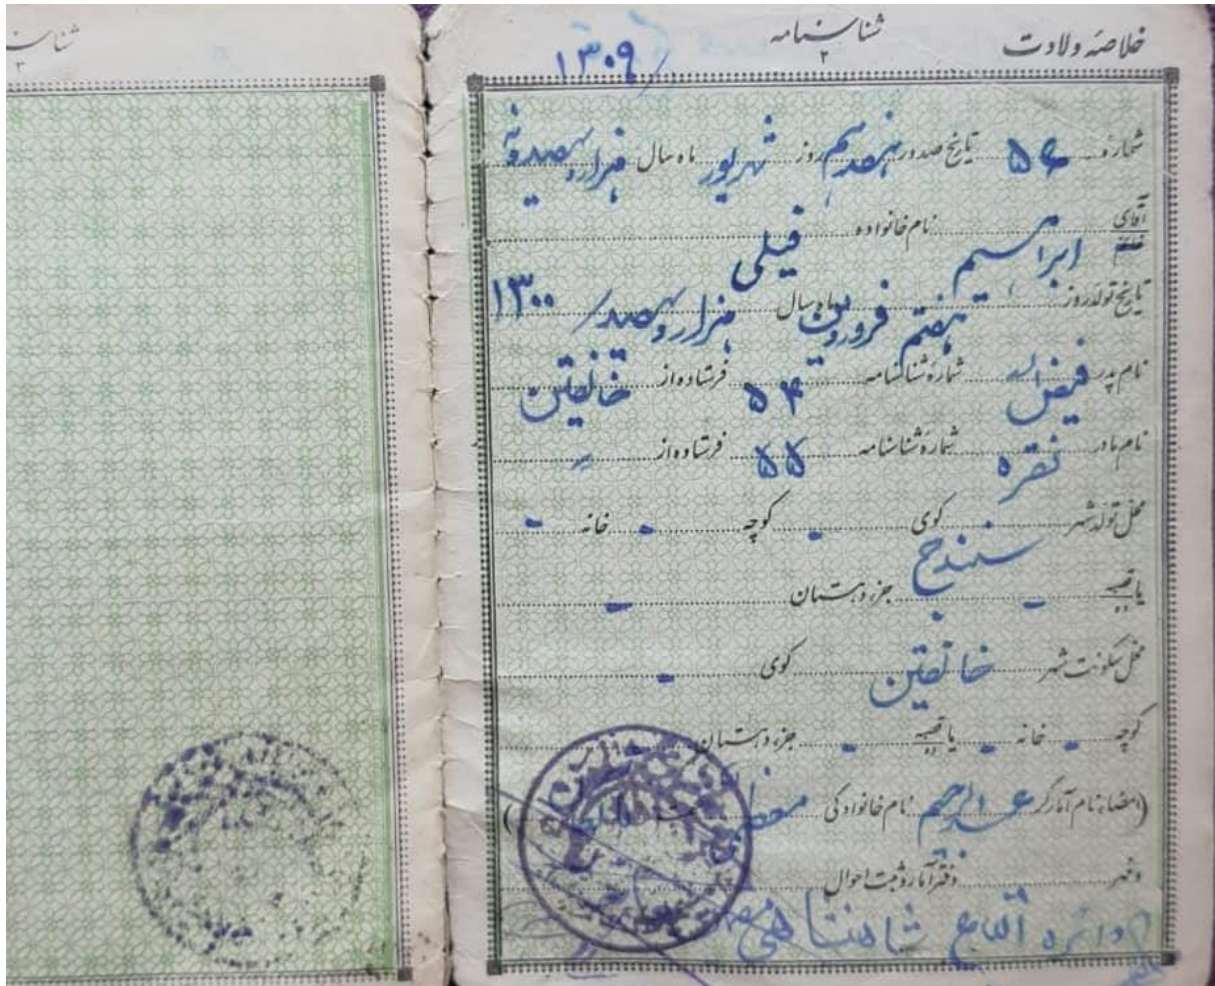 خلاصه ولادت شناسنامه ۲ ۱۳۰۹
شماره ۵۶ تاریخ صدور روز هیجدهم شهریور ماه سال هزار و سیصد و نه
آقای ابراهیم نام خانواده فیلی
خانم
تاریخ تولد روز هفتم فروردین ماه سال هزار و سیصد ۱۳۰۰
نام پدر فیض اله شماره شناسنامه ۵۴ فرستاده از خانقین
نام مادر نقره شماره شناسنامه ۵۵ فرستاده از "
محل تولد شهر سنندج کوی - کوچه - خانه -
یا قصبه ده - جزو دهستان -
محل سکونت شهر خانقین کوی -
کوچه - خانه - یا قصبه ده - جزو دهستان
(امضاء نام آمارگر عبدالرحیم نام خانوادگی
دفتر آمار و ثبت احوال
دایره اتباع شاهنشاهی
شناس
۳